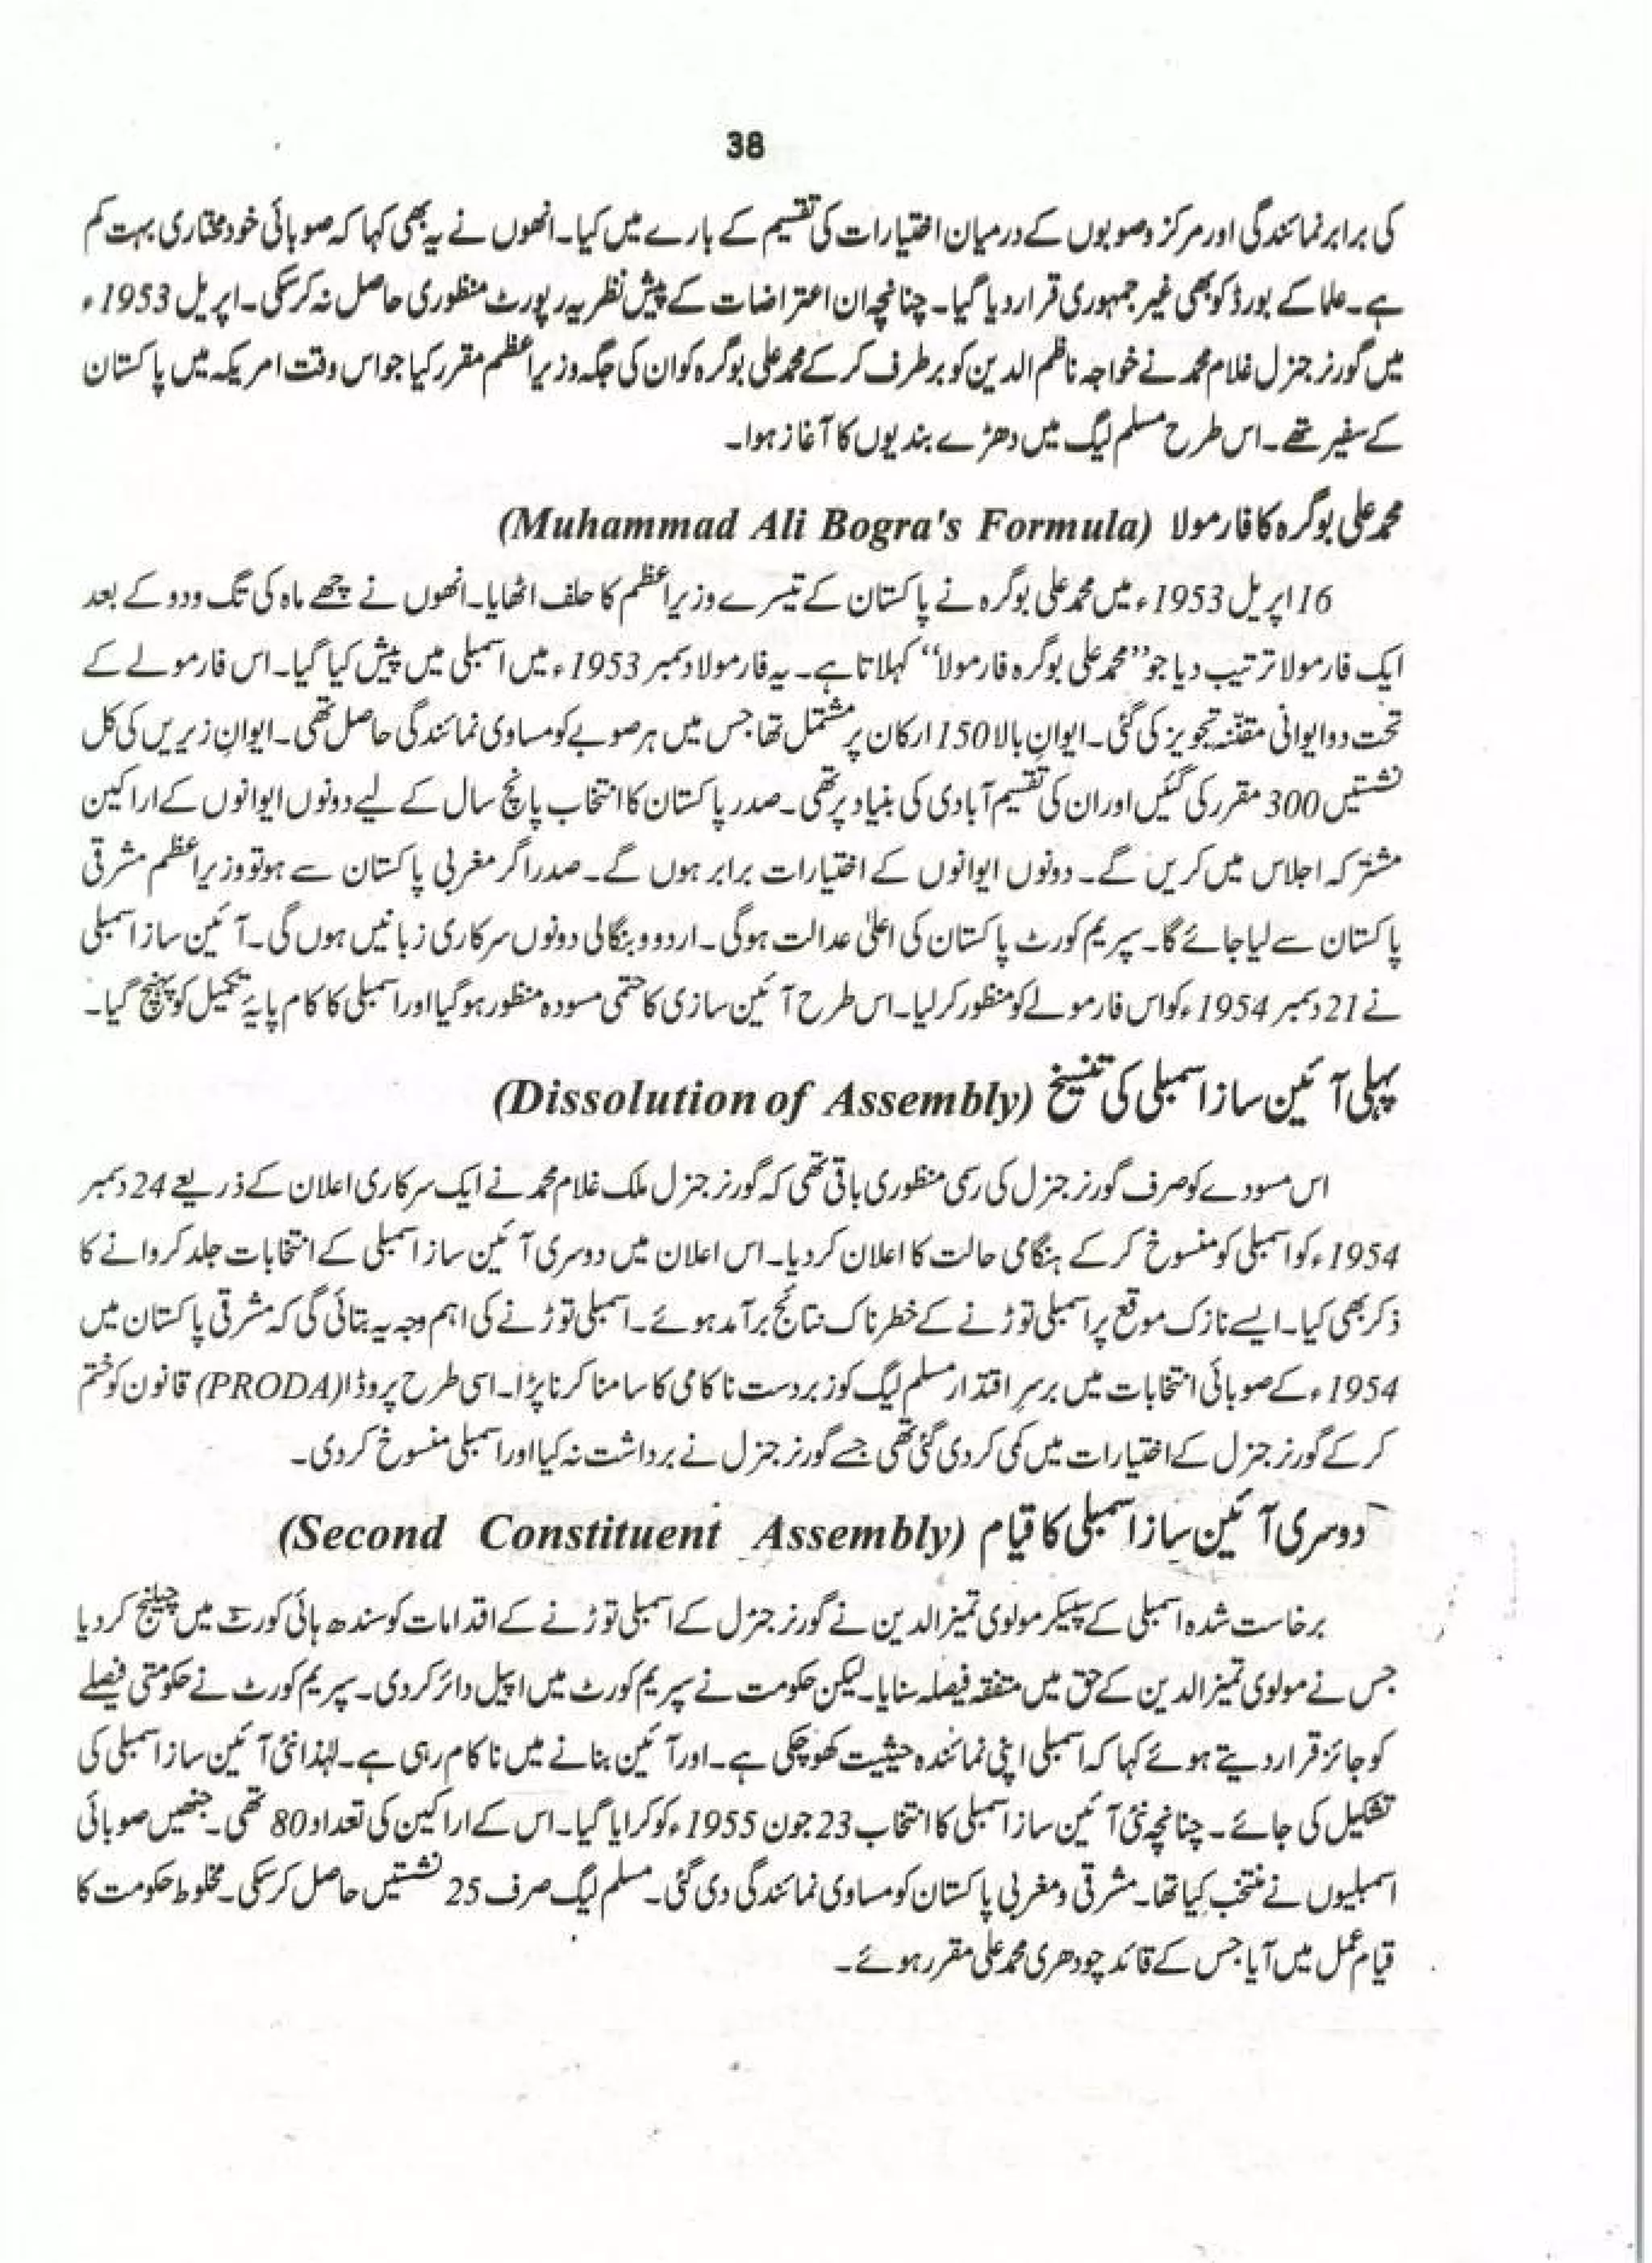 38
کی برابر نمائندگی اور مرکز و صوبوں کے درمیان اختیارات کی تقسیم کے بارے میں کیا۔ انھوں نے یہ بھی کہا کہ صوبائی خود مختاری بہت کم
ہے۔ علما کے بورڈ کو بھی غیر جمہوری قرار دیا گیا۔ چنانچہ ان اعتراضات کے پیش نظر یہ رپورٹ منظوری حاصل نہ کر سکی۔ اپریل 1953ء
میں گورنر جنرل غلام محمد نے خواجہ ناظم الدین کو برطرف کر کے محمد علی بوگرہ کو ان کی جگہ وزیراعظم مقرر کیا جو اس وقت امریکہ میں پاکستان
کے سفیر تھے۔ اس طرح مسلم لیگ میں دھڑے بندیوں کا آغاز ہوا۔
محمد علی بوگرہ کا فارمولا (Muhammad Ali Bogra's Formula)
16 اپریل 1953ء میں محمد علی بوگرہ نے پاکستان کے تیسرے وزیراعظم کا حلف اٹھایا۔ انھوں نے چھے ماہ کی تگ ودو کے بعد
ایک فارمولا ترتیب دیا جو ”محمد علی بوگرہ فارمولا“ کہلاتا ہے۔ یہ فارمولا دسمبر 1953ء میں اسمبلی میں پیش کیا گیا۔ اس فارمولے کے
تحت دو ایوانی مقننّہ تجویز کی گئی۔ ایوانِ بالا 150 ارکان پر مشتمل تھا جس میں ہر صوبے کو مساوی نمائندگی حاصل تھی۔ ایوانِ زیریں کی کل
نشستیں 300 مقرر کی گئیں اور ان کی تقسیم آبادی کی بنیاد پر تھی۔ صدر پاکستان کا انتخاب پانچ سال کے لیے دونوں ایوانوں کے اراکین
مشترکہ اجلاس میں کریں گے۔ دونوں ایوانوں کے اختیارات برابر ہوں گے۔ صدر اگر مغربی پاکستان سے ہو تو وزیراعظم مشرقی
پاکستان سے لیا جائے گا۔ سپریم کورٹ پاکستان کی اعلیٰ عدالت ہوگی۔ اردو و بنگالی دونوں سرکاری زبانیں ہوں گی۔ آئین ساز اسمبلی
نے 21 دسمبر 1954ء کو اس فارمولے کو منظور کر لیا۔ اس طرح آئین سازی کا حتمی مسودہ منظور ہو گیا اور اسمبلی کا کام پایۂ تکمیل کو پہنچ گیا۔
پہلی آئین ساز اسمبلی کی تنسیخ (Dissolution of Assembly)
اس مسودے کو صرف گورنر جنرل کی رسمی منظوری باقی تھی کہ گورنر جنرل ملک غلام محمد نے ایک سرکاری اعلان کے ذریعے 24 دسمبر
1954ء کو اسمبلی کو منسوخ کر کے ہنگامی حالت کا اعلان کر دیا۔ اس اعلان میں دوسری آئین ساز اسمبلی کے انتخابات جلد کروانے کا
ذکر بھی کیا۔ ایسے نازک موقع پر اسمبلی توڑنے کے خطرناک نتائج برآمد ہوئے۔ اسمبلی توڑنے کی اہم وجہ یہ بتائی گی کہ مشرقی پاکستان میں
1954ء کے صوبائی انتخابات میں برسرِ اقتدار مسلم لیگ کو زبردست ناکامی کا سامنا کرنا پڑا۔ اسی طرح پروڈا (PRODA) قانون کو ختم
کر کے گورنر جنرل کے اختیارات میں کمی کر دی گئی تھی جسے گورنر جنرل نے برداشت نہ کیا اور اسمبلی منسوخ کر دی۔
دوسری آئین ساز اسمبلی کا قیام (Second Constituent Assembly)
برخاست شدہ اسمبلی کے سپیکر مولوی تمیز الدین نے گورنر جنرل کے اسمبلی توڑنے کے اقدامات کو سندھ ہائی کورٹ میں چیلنج کر دیا
جس نے مولوی تمیز الدین کے حق میں متفقہ فیصلہ سنایا۔ لیکن حکومت نے سپریم کورٹ میں اپیل دائر کر دی۔ سپریم کورٹ نے حکومتی فیصلے
کو جائز قرار دیتے ہوئے کہا کہ اسمبلی اپنی نمائندہ حیثیت کھو چکی ہے۔ اور آئین بنانے میں ناکام رہی ہے۔ لہٰذا نئی آئین ساز اسمبلی کی
تشکیل کی جائے۔ چنانچہ نئی آئین ساز اسمبلی کا انتخاب 23 جون 1955ء کو کرایا گیا۔ اس کے اراکین کی تعداد 80 تھی۔ جنھیں صوبائی
اسمبلیوں نے منتخب کیا تھا۔ مشرقی و مغربی پاکستان کو مساوی نمائندگی دی گئی۔ مسلم لیگ صرف 25 نشستیں حاصل کر سکی۔ مخلوط حکومت کا
قیام عمل میں آیا جس کے قائد چودھری محمد علی مقرر ہوئے۔